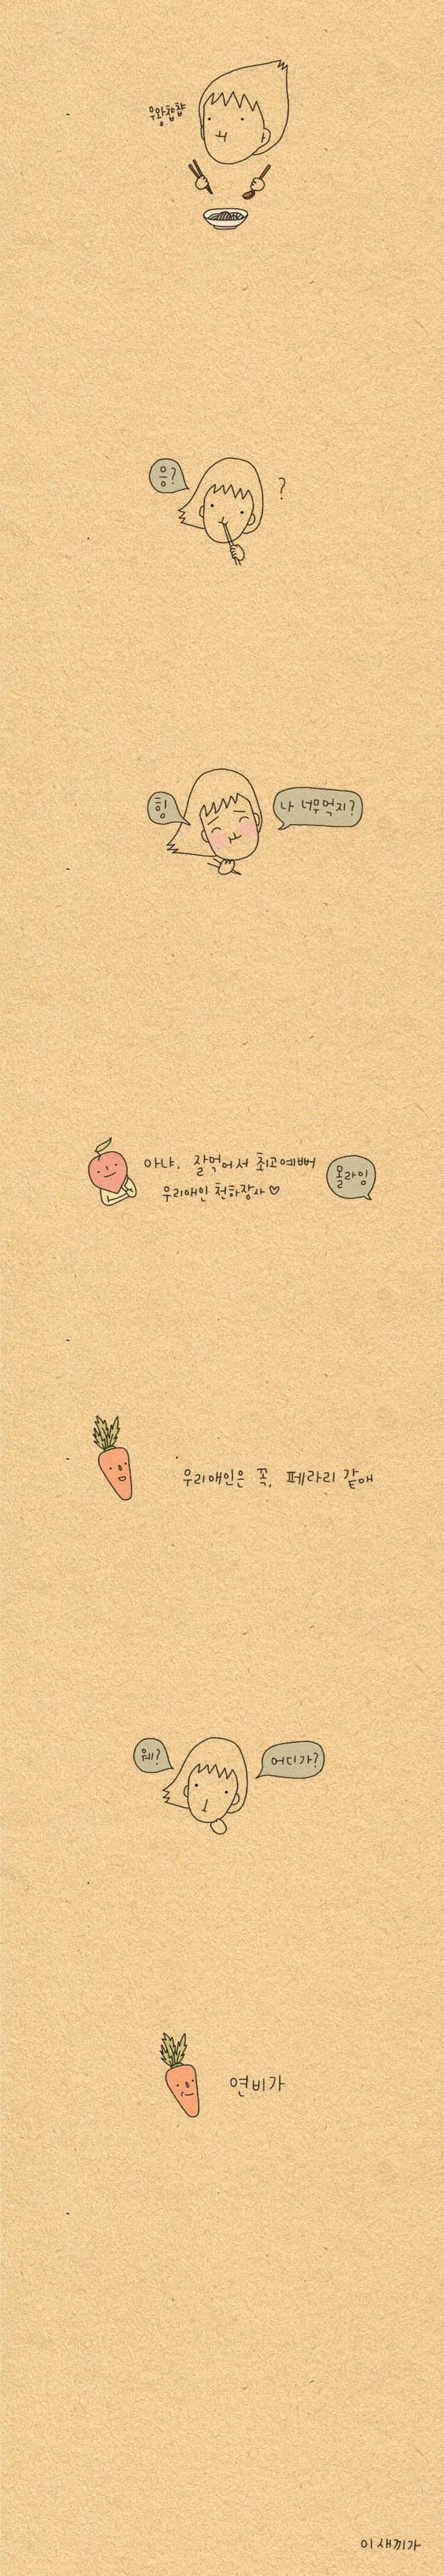 우왕챱챱
응?
?
힝
나 너무먹지?
아냐, 잘먹어서 최고예뻐
우리애인 천하장사♡
몰라잉
우리애인은 꼭, 페라리 같애
웨?
어디가?
연비가
이새끼가